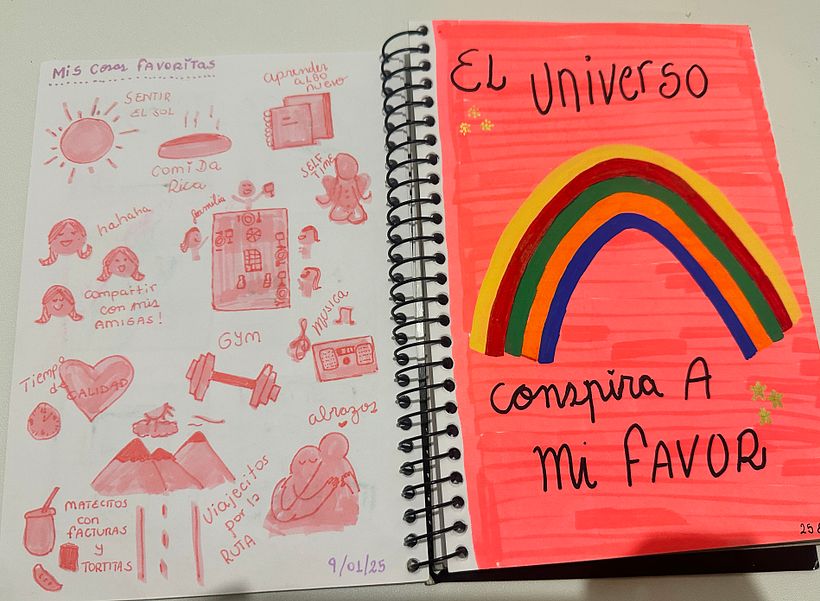 Mis cosas FAVORITAS
SENTIR
EL SOL
Aprender
ALGO
nuevo
comiDa
Rica
SELF
TIME
familia
hahaha
compartir
con mis
AMIGAS!
GYM
musica
Tiempo
de
CALIDAD
abrazos
MATECITOS
con
FACTURAS
y
TORTITAS
Viajecitos
por la
RUTA
9/01/25
EL universo
conspira A
mi FAVOR